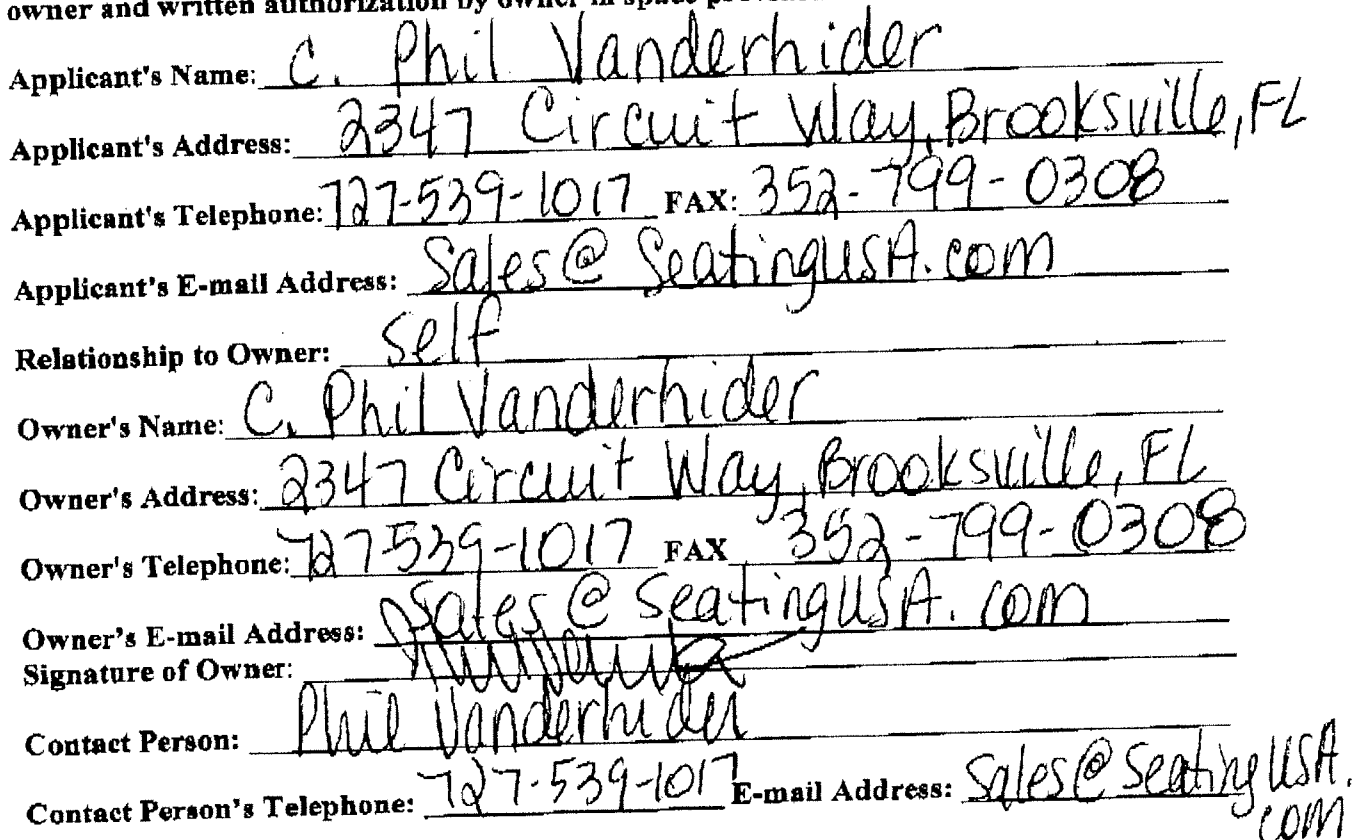 owner and written authorization by owner in space
Applicant's Name: C. Phil Vanderhider
Applicant's Address: 2347 Circuit Way, Brooksville, FL
Applicant's Telephone: 727-539-1017 FAX: 352-799-0308
Applicant's E-mail Address: Sales@SeatingUSA.com
Relationship to Owner: Self
Owner's Name: C. Phil Vanderhider
Owner's Address: 2347 Circuit Way, Brooksville, FL
Owner's Telephone: 727-539-1017 FAX 352-799-0308
Owner's E-mail Address: Sales@SeatingUSA.com
Signature of Owner:
Contact Person: Phil Vanderhider
Contact Person's Telephone: 727-539-1017 E-mail Address: Sales@SeatingUSA.
com